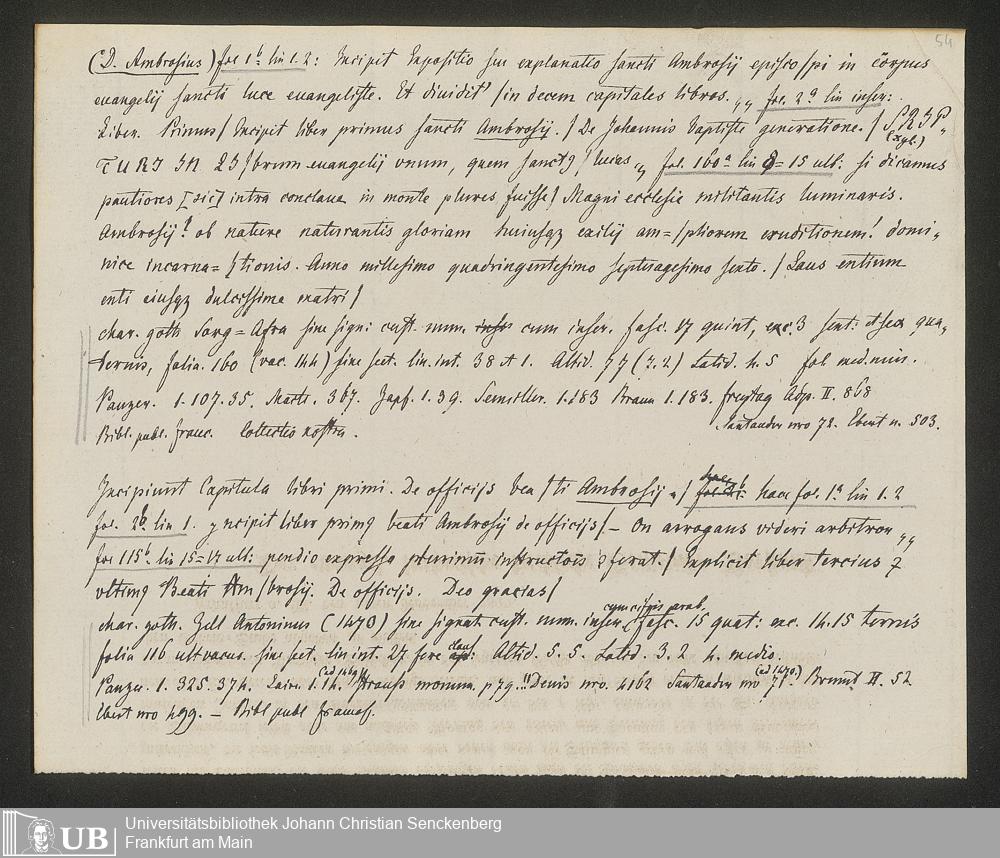 54
(D. Ambrosius) fol 1b lin 1. 2: Incipit Expositio seu explanatio sancti Ambrosij episco/pi in cōrpus
euangelij sancti luce euangeliste. Et diuidit' / in decem capitales libros. „ fol. 2a lin inser:
Liber. Primus / Incipit liber primus sancti Ambrosij. / De Johannis baptiste generatione. / SRIP„
(xyl.)
TURI IN LI/brum euangelij unum, quem sanct9 / lucas „ fol. 160a lin = 15 ult: si dicamus
pautiores [sic] intra conclaue in monte plures fuisse / Magni ecclesie militantis luminaris.
Ambrosij! ob nature naturantis gloriam huiusqz exilij am=/pliorem eruditionem! domi„
nice incarna=/tionis. Anno millesimo quadringentesimo septuagesimo sexto. / Laus entium
enti eiusqz dulcissime matri /
char. goth Sorg = Afra sine sign: cust. num. cum inser. fasc. 17 quint, exc. 3 sext: et qua„
ternis, folia. 160 (vac. 144) sine sect. lin. int. 38 et 1. Altid. 7 7 (7. 2) Latid. 4. 5 fol med. min.
Panzer. 1. 107. 35. Maitt. 367. Zapf. 1. 39. Semiller. 1. 183 Braun 1. 183. freytag App. II. 868
Bibl. publ. franc. Collectio nostra. Santander nro 72. Ebert n. 503.
Incipiunt Capitula libri primi. De officijs bea/ti Ambrosij „ / haec fol. 1a lin 1. 2
fol. 2b. lin 1. yncipit liber prim9 beati Ambrosij de officijs / – On arrogans videri arbitror „
fol 115b. lin 15=17 ult: pendio expressa plurimū instructōis ferat. / Explicit liber tercius
vltim9 Beati Am/brosij. De officijs. Deo gracias /
char. goth. Zell Antoninus (1470) sine signat. cust. num. inser. (cum cifris arab. fasc. 15 quat: exc. 14. 15 ternis
folia 116 ult vacuo. sine sect. lin int. 27 fere Altid. 5. 5. Latid. 3. 2 4. media.
Panzer. 1. 325. 374. Laire. 1. 14. Strauss monum. p 79. !! Denis nro. 4162 Santander nro 71. (ad 1470.) Brunet II. 52
Ebert nro 499. – Bibl publ francof.
UB
Universitätsbibliothek Johann Christian Senckenberg
Frankfurt am Main